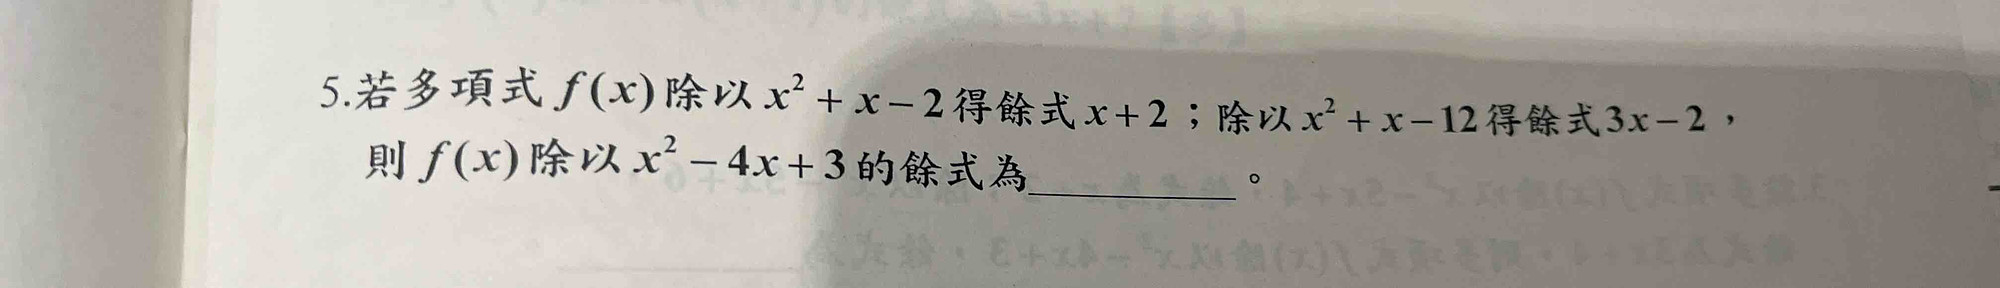 5.若多項式 f(x)除以 x² + x − 2 得餘式 x + 2；除以 x² + x − 12 得餘式 3x − 2，
則 f(x)除以 x² − 4x + 3 的餘式為________。